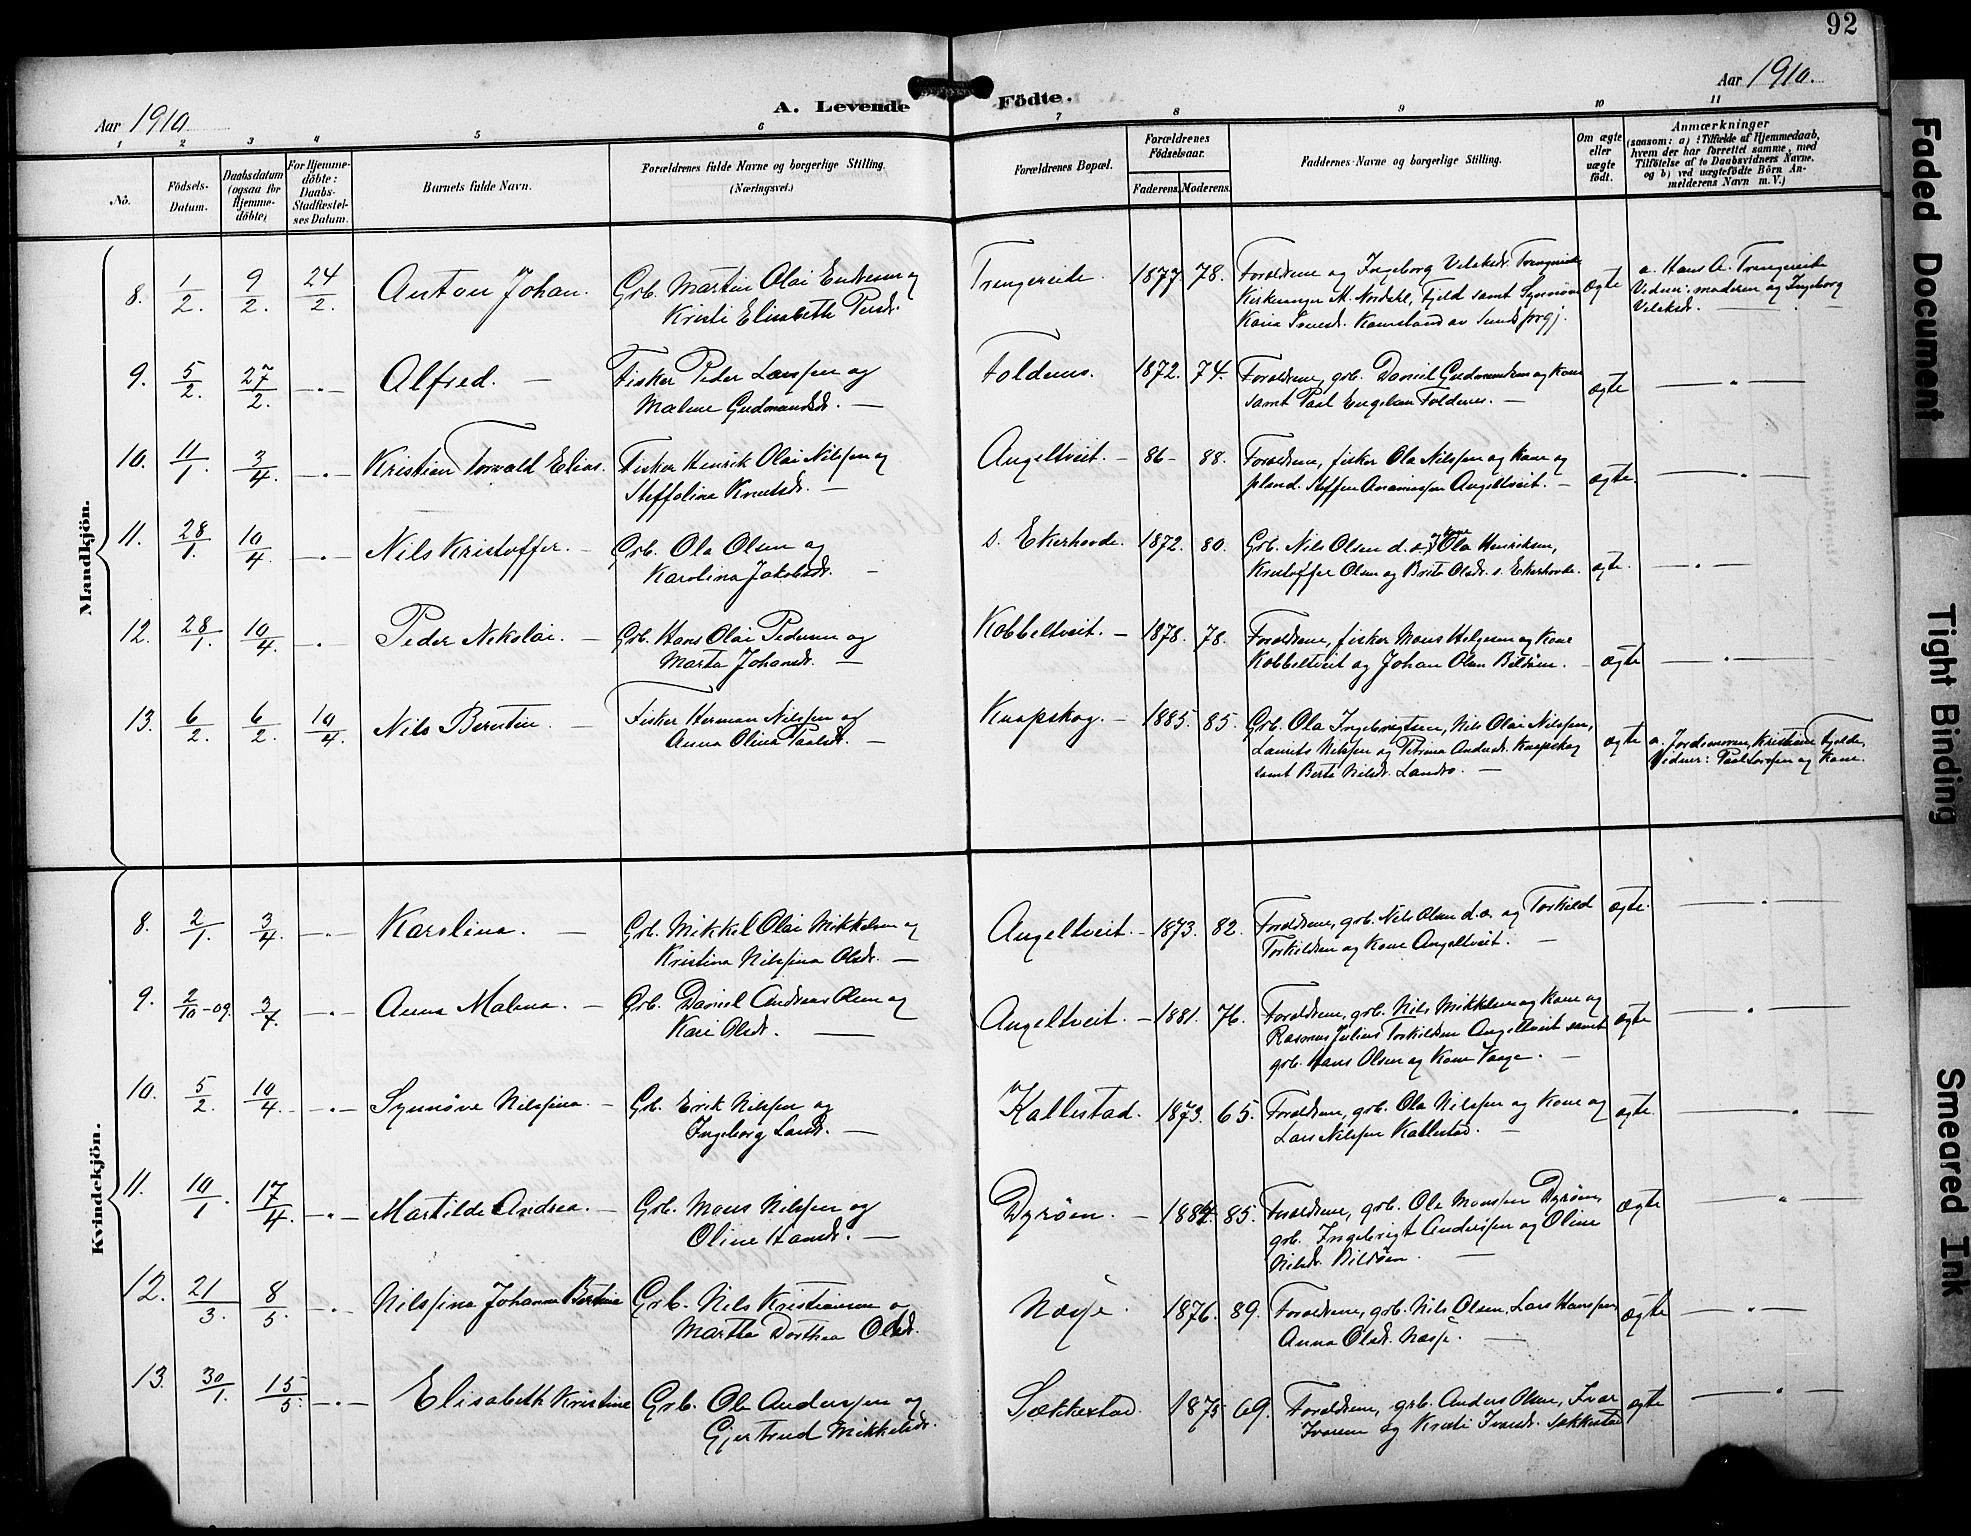 92
Aar 1910
A. Levende Födte.
Aar 1910.
1 2 3 4 5 6 7 8 9 10 11
No.
Födsels-Datum.
Daabsdatum (ogsaa for Hjemme-döbte)
For Hjemme-döbte: Daabs-Stadfæstelses Datum.
Barnets fulde Navn.
Forældrenes fulde Navne og borgerlige Stilling. (Næringsvei.)
Forældrenes Bopæl.
Forældrenes Födselsaar.
Faderens. Moderens.
Faddernes Navne og borgerlige Stilling.
Om ægte eller uægte födt.
Anmærkninger
(saasom: a) i Tilfælde af Hjemmedaab,
hvem der har forrettet samme, med
Tilföielse af to Daabsvidners Navne.
og b) ved uægtefödte Börn An-
melderens Navn m. V.)
Mandkjön.
8. 1/2. 9/2. 24/2. Anton Johan. Grb. Martin Olai Endresen og
Kristi Elisabeth Persd.
Trengereide. 1877. 78. Forældrene og Ingeborg Trengereide
Kirkesanger M. Nordahl, Fjeld samt Synnøve
ægte a. Hans A. Trengereide
Vidner: moderen og Ingeborg
9. 5/2. 27/2. —"— Alfred. — Fisker Peder Larssen og
Malene Gudmundsdr. —
Foldenes. 1872. 74. Forældrene, grb. Daniel Gudmundsen og kone
samt Paal Engelsen Foldenes. —
ægte — " —
10. 11/1. 3/4. —"— Kristian Torvald Elias. Fisker Henrik Olai Nilssen og
Steffolina Knutsdr. —
Angeltveit. — 86 — 88. Forældrene, fisker Ola Nilssen og kone og
Steffen Ananiassen Angeltveit. —
ægte. — " —
11. 28/1. 10/4. —"— Nils Kristoffer. — Grb. Ola Olsen og
Karolina Jakobsdr. —
s. Ekerhovde. 1872. 80. Grb. Nils Olsen d.æ., kone Ola Henriksen,
Kristoffer Olsen og Brita Olsdr. s. Ekerhovde.
ægte. — " —
12. 28/1. 10/4. —"— Peder Nikolai. — Grb. Hans Olai Pedersen og
Marta Johansdr. —
Kobbeltveit. — 1878. 78. Forældrene, fisker Mons Helgesen og Kone
Kobbeltveit og Johan Olsen Bildøen. —
ægte — " —
13. 6/2. 6/2. 10/4. Nils Berntin. — Fisker Herman Nilssen og
Anna Olina Paalsdr. —
Knapskog. — 1885. 85. Grb. Ola Ingebrigtsen, Nils Olai Nilssen,
Laurits Nilssen og Petrina Andersdr. Knapskog
samt Berta Nilsdr. Landro. —
ægte a. Jordemoren, Kristiane Fjelde,
Vidner: Paal Larssen og Kone.
Kvindekjön.
8. 2/1. 3/4. —"— Karolina. — Grb. Mikkel Olai Mikkelsen og
Kristina Nilssina Olsdr. —
Angeltveit. — 1873. 82. Forældrene, grb. Nils Olsen d.æ. og Torkild
Torkildsen og Kone Angeltveit. —
ægte. — " —
9. 2/10-09. 3/4. —"— Anna Malena. — Grb. Daniel Andreas Olsen og
Kari Olsdr. —
Angeltveit. — 1881. 76. Forældrene, grb. Nils Mikkelsen og Kone og
Rasmus Julius Torkildsen Angeltveit samt
grb. Hans Olsen og Kone Vaage. —
ægte — " —
10. 5/2. 10/4. —"— Synnøve Nilssina. — Grb. Erik Nilssen og
Ingeborg Larsdr. —
Kallestad. 1873. 65. Forældrene, grb. Ola Nilssen og Kone og
Lars Nilssen Kallestad. —
ægte. — " —
11. 10/1. 17/4. —"— Martilde Andrea. — Grb. Mons Nilssen og
Oline Hansdr. —
Dyrøen. — 1884. 85. Forældrene, grb. Ole Monssen Dyrøen,
grb. Ingebrigt Anderssen og Oline
Nilsdr. Bildøen. —
ægte — " —
12. 21/3. 8/5. —"— Nilssina Johanne Bertina Grb. Nils Kristiansen og
Martha Dorthea Olsdr.
Næsse. 1876. 89. Forældrene, grb. Nils Olsen, Lars Hanssen,
Anna Olsdr. Næsse. —
ægte — " —
13. 30/1. 15/5. —"— Elisabeth Kristine Grb. Ole Anderssen og
Gjertrud Mikkelsdr.
Sækkestad. 1875 69. Forældrene, grb. Anders Olsen, Ivar
Ivarsen og Kristi Ivarsdr. Sækkestad
ægte — " —
Faded Document
Tight Binding
Smeared Ink